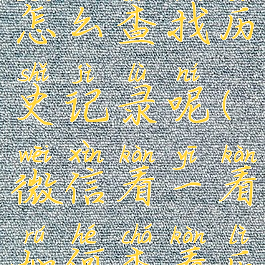 怎么查找历
shǐ jì lù ne
史记录呢(
wēi xìn kàn yī kàn
微信看一看
rú hé chá kàn lì
如何查看历